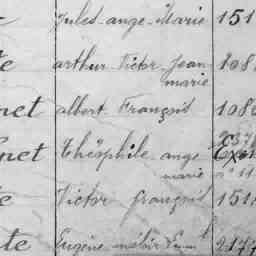 Jules-ange-Marie 151
te arthur Victor Jean 108
marie
net albert François 1080
net Théophile ange
marie
te Victor françois 151
te Eugène 2147